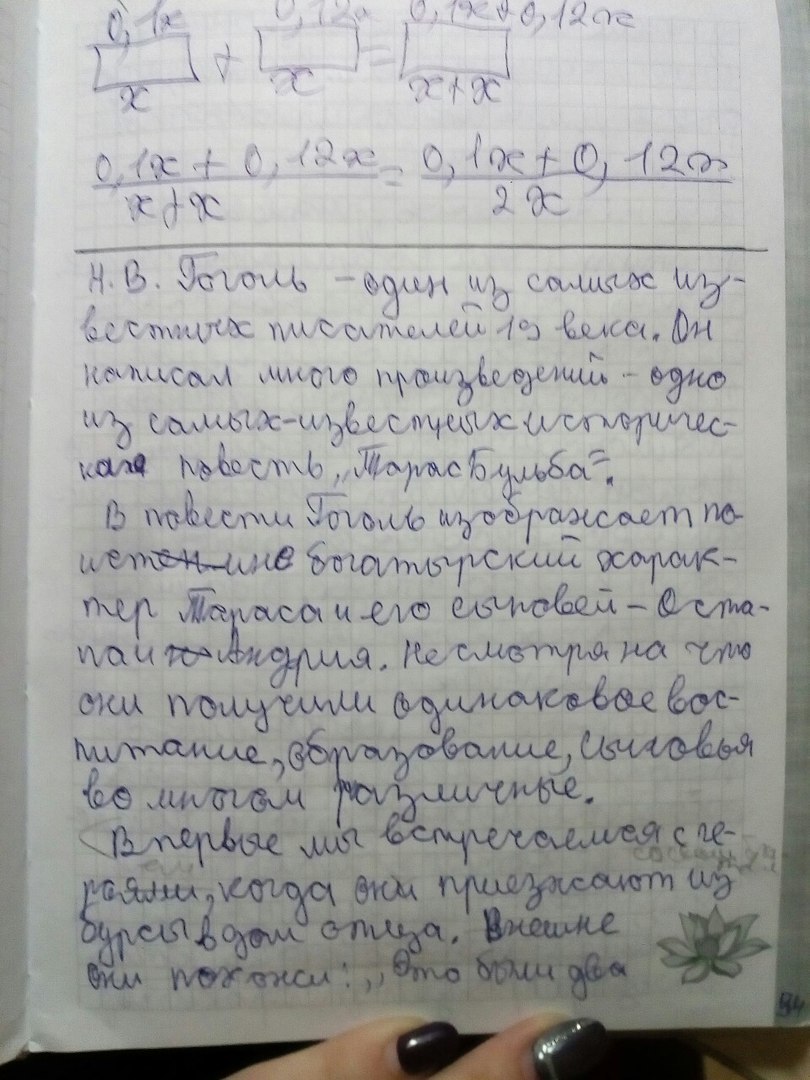 0,1x 0,12x 0,1x+0,12x
+ =
x x x+x
0,1x + 0,12x = 0,1x + 0,12x
x+x 2x
Н.В. Гоголь – один из самых из-
вестных писателей 19 века. Он
написал много произведений – одно
из самых-известных историчес-
кая повесть „Тарас Бульба“.
В повести Гоголь изображает по-
истине богатырский харак-
тер Тараса и его сыновей – Оста-
па и Андрия. Несмотря на что
они получили одинаковое вос-
питание, образование, сыновья
во многом различные.
Впервые мы встречаемся с ге-
роями, когда они приезжают из
бурсы в дом отца. Внешне
они похожи: „Это были два
94